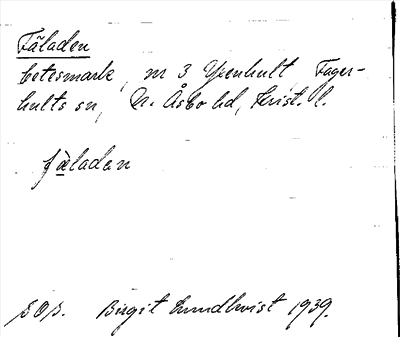 Fäladen
betesmark, nr 3 Yxenhult, Fager-
hults sn, N. Åsbo hd, Krist. l.
fæ̀ladan
SOB. Birgit Lundkvist 1939.